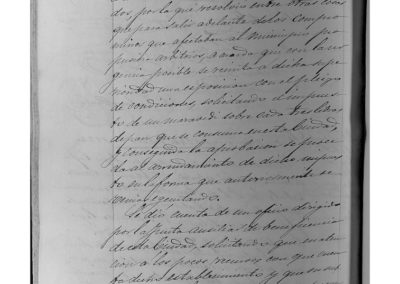 dos, por la que resolvió entre otras cosas
que para salir adelante de los compro-
misos que afectaban al municipio pro
pusiera arbitrios, acordó que con la ur-
gencia posible se remita a dicha supe-
rioridad una exposición con el pliego
de condiciones, solicitando el impues-
to de un maravedí sobre cada tres libras
de pan que se consuma en esta Ciudad,
y conseguida la aprobacion se proce-
da al arrendamiento de dicho impues-
to en la forma que
Se dió cuenta de un oficio dirigido
por la Junta auxiliar de beneficencia
de esta Ciudad, solicitando que en aten-
cion a los pocos recursos con que cuen-
ta dicho establecimiento y que en su